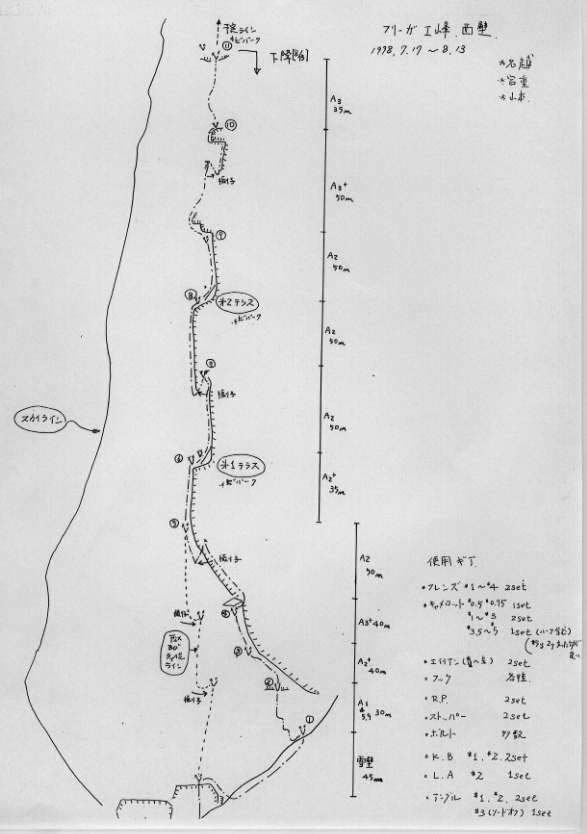 フリーガ I峰 西壁
1998.7.17〜8.13
*名越
*山本
予定ライン
ビバーク
下降開始
⑪
A3
35m
⑩
A3+
50m
振子
⑨
A2
50m
⑧
#2テラス
ビバーク
A2
50m
振子
スカイライン
A2
50m
⑥
#1テラス
ビバーク
A2+
35m
⑤
振子
A2
50m
④
A3+ 40m
振子
ライン
③
A2+
40m
振子
②
A3
5.9 30m
①
雪壁
45m
使用ギア
・フレンズ #1〜#4 2set
・キャメロット #0.5 #0.75 1set
#1〜#3 2set
#3.5〜#5 1set
・エイリアン 2set
・フック 各種
・R.P. 2set
・ストッパー 2set
・ボルト
・K.B #1, #2, 2set
・L.A #2 1set
・アングル #1, #2, 2set
#3 (ソードオフ) 1set